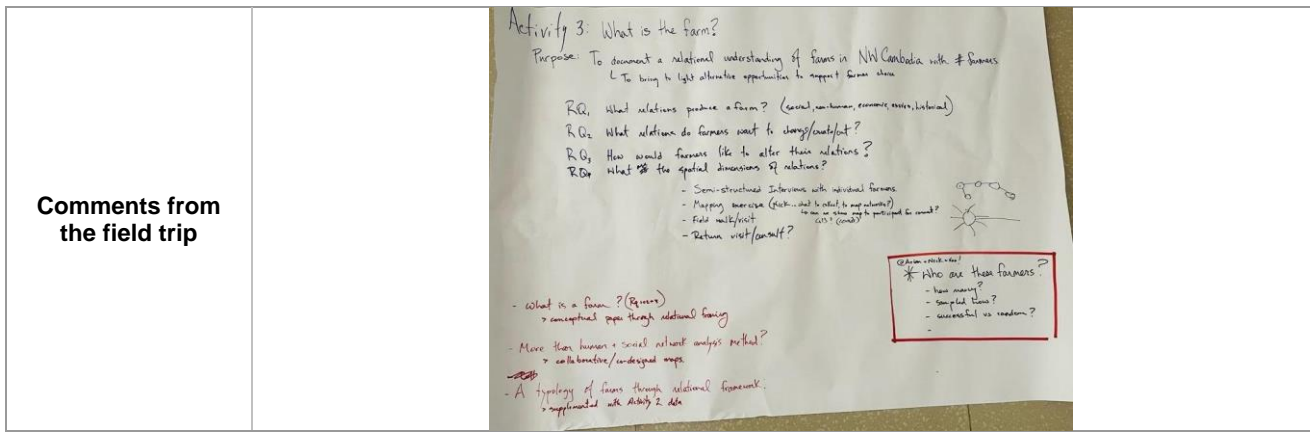 Comments from
the field trip
Activity 3: What is the farm?
Purpose: To document a relational understanding of farms in NW Cambodia with # farmers
To bring to light alternative opportunities to support farmer choice
RQ1 What relations produce a farm? (social, non-human, economic, historical)
RQ2 What relations do farmers want to change/create/cut?
RQ3 How would farmers like to alter their relations?
RQ4 What the spatial dimensions of relations?
- Semi-structured Interviews with individual farmers.
- Mapping exercise (Nick... what to collect, to map networks?)
can we show map to participant for comment?
GIS?
- Field walk/visit
- Return visit/consult?
* Who are these farmers?
- how many?
- sampled how?
- successful vs random?
-
- What is a farm?
> conceptual paper through relational framing
- More than human + social network analysis method?
> collaborative/co-designed maps.
- A typology of farms through relational framework.
> supplemented with Activity 2 data